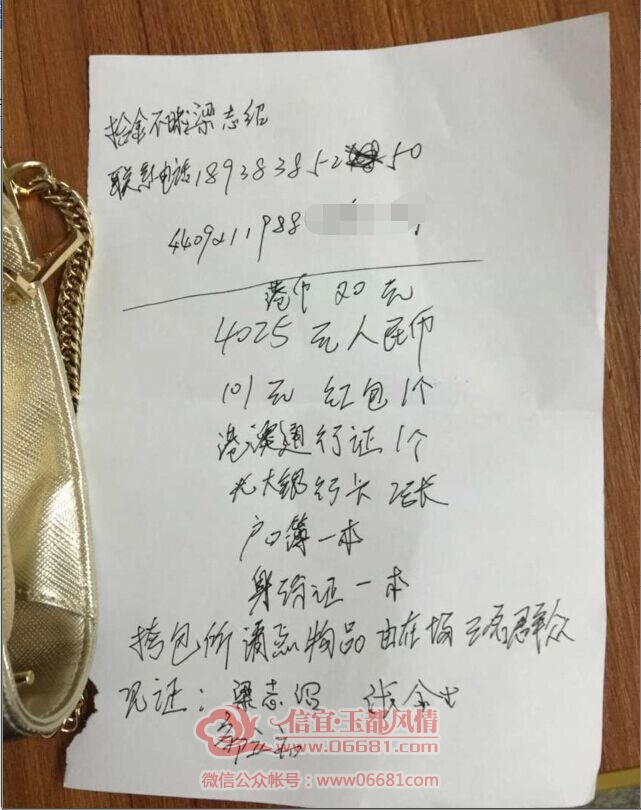 拾金不昧梁志绍
联系电话18938385250
4409211988
港币 20 元
4025 元人民币
101元 红包1个
港澳通行证1个
光大银行卡 2张
户口簿一本
身份证一本
挎包所清点物品由在场三名群众
见证：梁志绍 张金
信宜·玉都风情
www.06681.com
微信公众帐号：www06681com